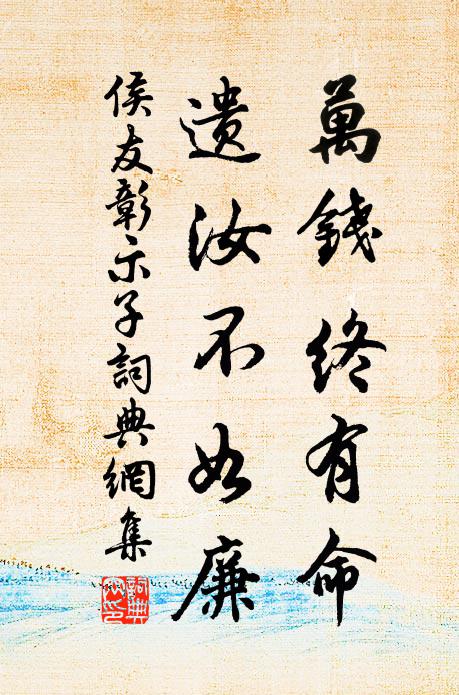 萬錢終有命
遺汝不如廉
侯友彰示子詞典網集